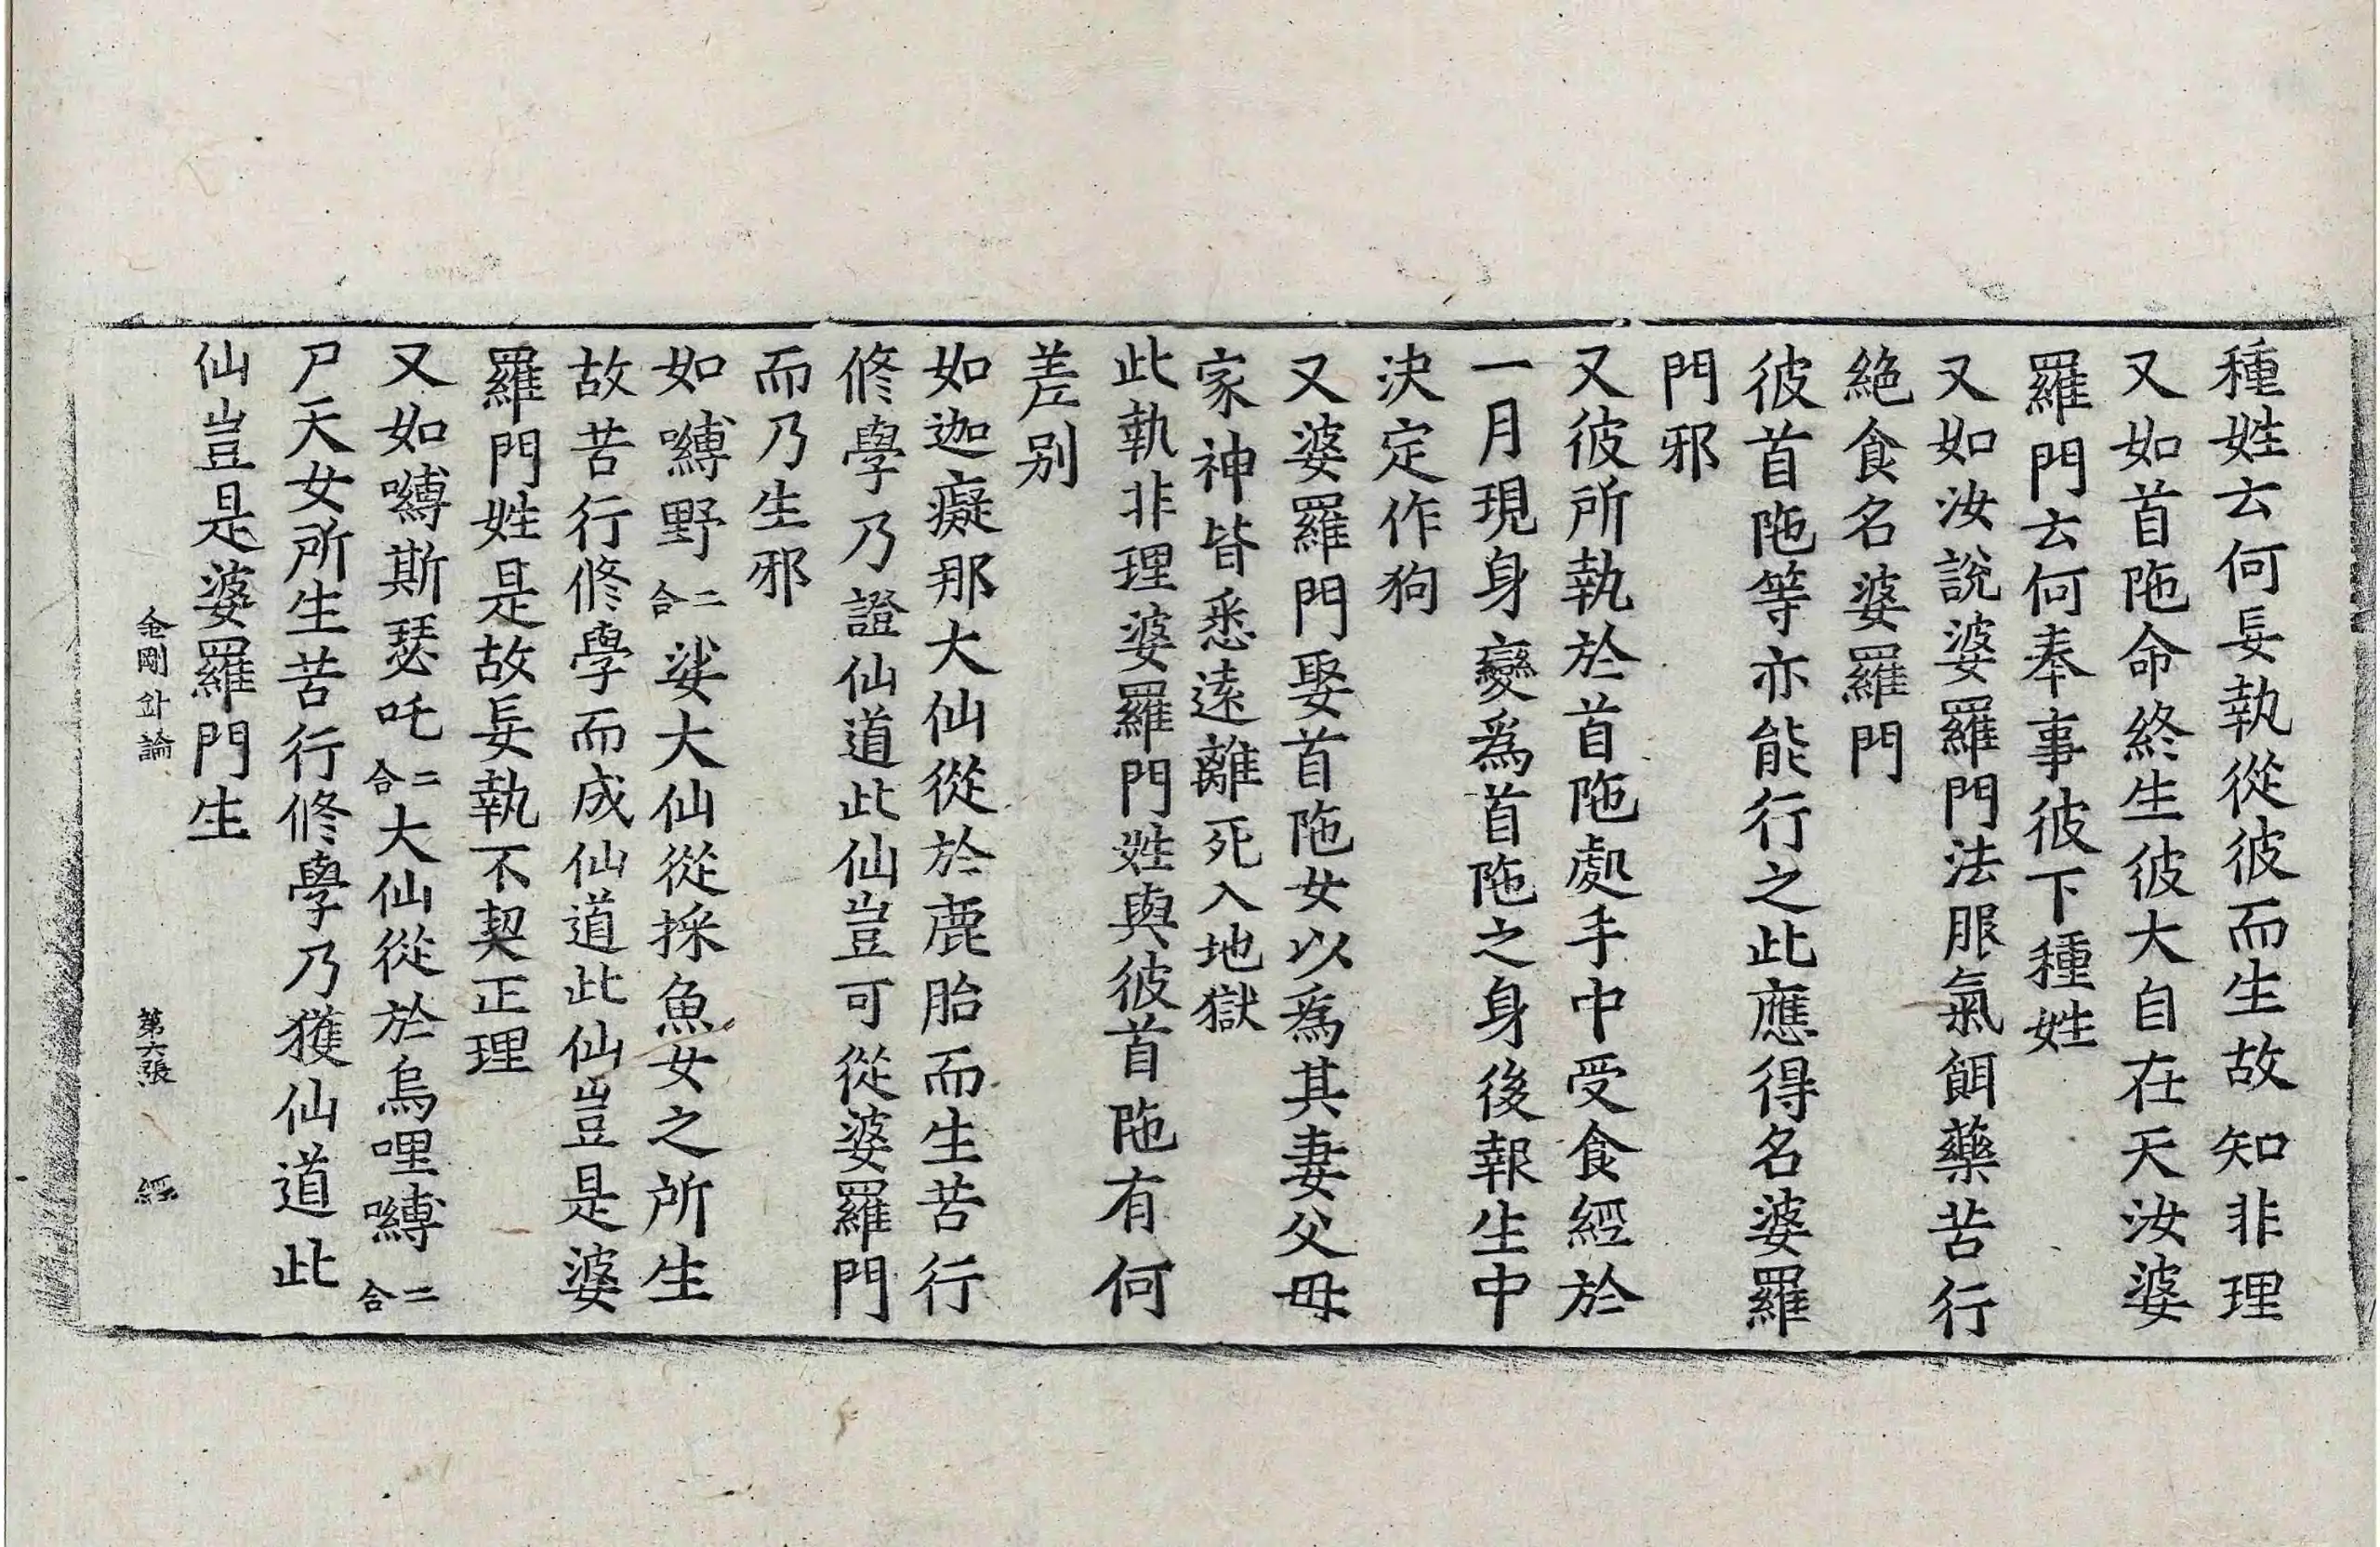 種姓云何妄執從彼而生故知非理
又如首陁命終生彼大自在天汝婆
羅門云何奉事彼下種姓
又如汝說婆羅門法服氣餌藥苦行
絶食名婆羅門
彼首陁等亦能行之此應得名婆羅
門邪
又彼所執於首陁處手中受食經於
一月現身變爲首陁之身後報生中
決定作狗
又婆羅門娶首陁女以爲其妻父母
家神皆悉遠離死入地獄
此執非理婆羅門姓與彼首陁有何
差别
如迦癡那大仙從於鹿胎而生苦行
修學乃證仙道此仙豈可從婆羅門
而乃生邪
如嚩野二合娑大仙從採魚女之所生
故苦行修學而成仙道此仙豈是婆
羅門姓是故妄執不契正理
又如嚩斯瑟吒二合大仙從於烏哩嚩二合
尸天女所生苦行修學乃獲仙道此
仙豈是婆羅門生
金剛針論 第六張 經